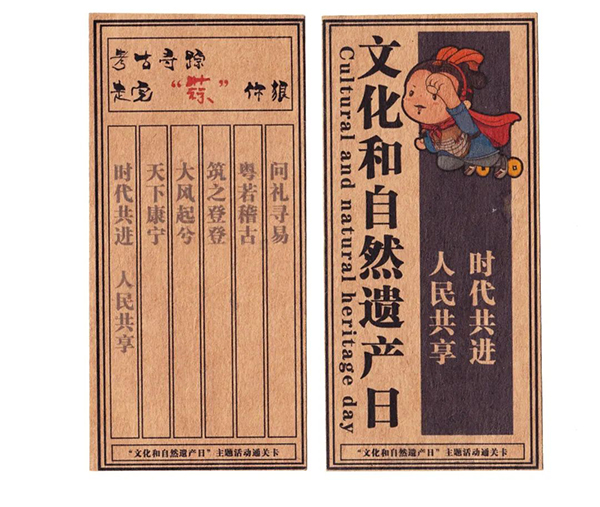 考古寻踪
走完“蒜”你狠
问礼寻易
粤若稽古
筑之登登
大风起兮
天下康宁
时代共进 人民共享
“文化和自然遗产日”主题活动通关卡
文化和自然遗产日
Cultural and natural heritage day
时代共进
人民共享
“文化和自然遗产日”主题活动通关卡